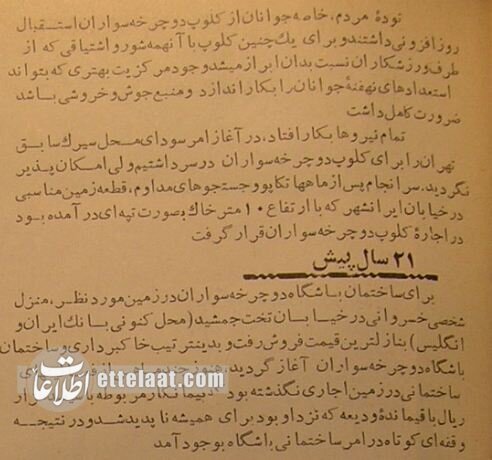 توده مردم، خاصه جوانان از کلوپ دوچرخه‌سواران استقبال
روزافزونی داشتند و برای یك چنین کلوپ با آنهمه شور و اشتیاقی که از
طرف ورزشکاران نسبت بدان ابراز میشد وجود مرکزیت بهتری که بتواند
استعدادهای نهفتهٔ جوانان را بکار اندازد و منبع جوش و خروشی باشد
ضرورت کامل داشت
تمام نیروها بکار افتاد، در آغاز امر سودای محل سیرك سابق
تهران را برای کلوپ دوچرخه‌سواران در سر داشتیم ولی امکان پذیر
نگردید. سرانجام پس از ماهها تکاپو و جستجوهای مداوم، قطعه زمین مناسبی
در خیابان ایرانشهر که با ارتفاع ۱۰ متر خاك بصورت تپه‌ای در آمده بود
در اجاره کلوپ دوچرخه‌سواران قرار گرفت
۲۱ سال پیش
برای ساختمان باشگاه دوچرخه‌سواران در زمین مورد نظر، منزل
شخصی خسروانی در خیابان تخت جمشید (محل کنونی بانك ایران و
انگلیس) بنازلترین قیمت فروش رفت و بدینترتیب خاکبرداری و ساختمان
باشگاه دوچرخه‌سواران آغاز گردید، هنوز
ساختمانی در زمین اجاری نگذشته بود پیمانکار مربوطه با
ریال باقیمانده ودیعه که نزد او بود برای همیشه ناپدید شد و در نتیجه
وقفه‌ای کوتاه در امر ساختمانی باشگاه بوجود آمد
اطلاعات
ettelaat.com